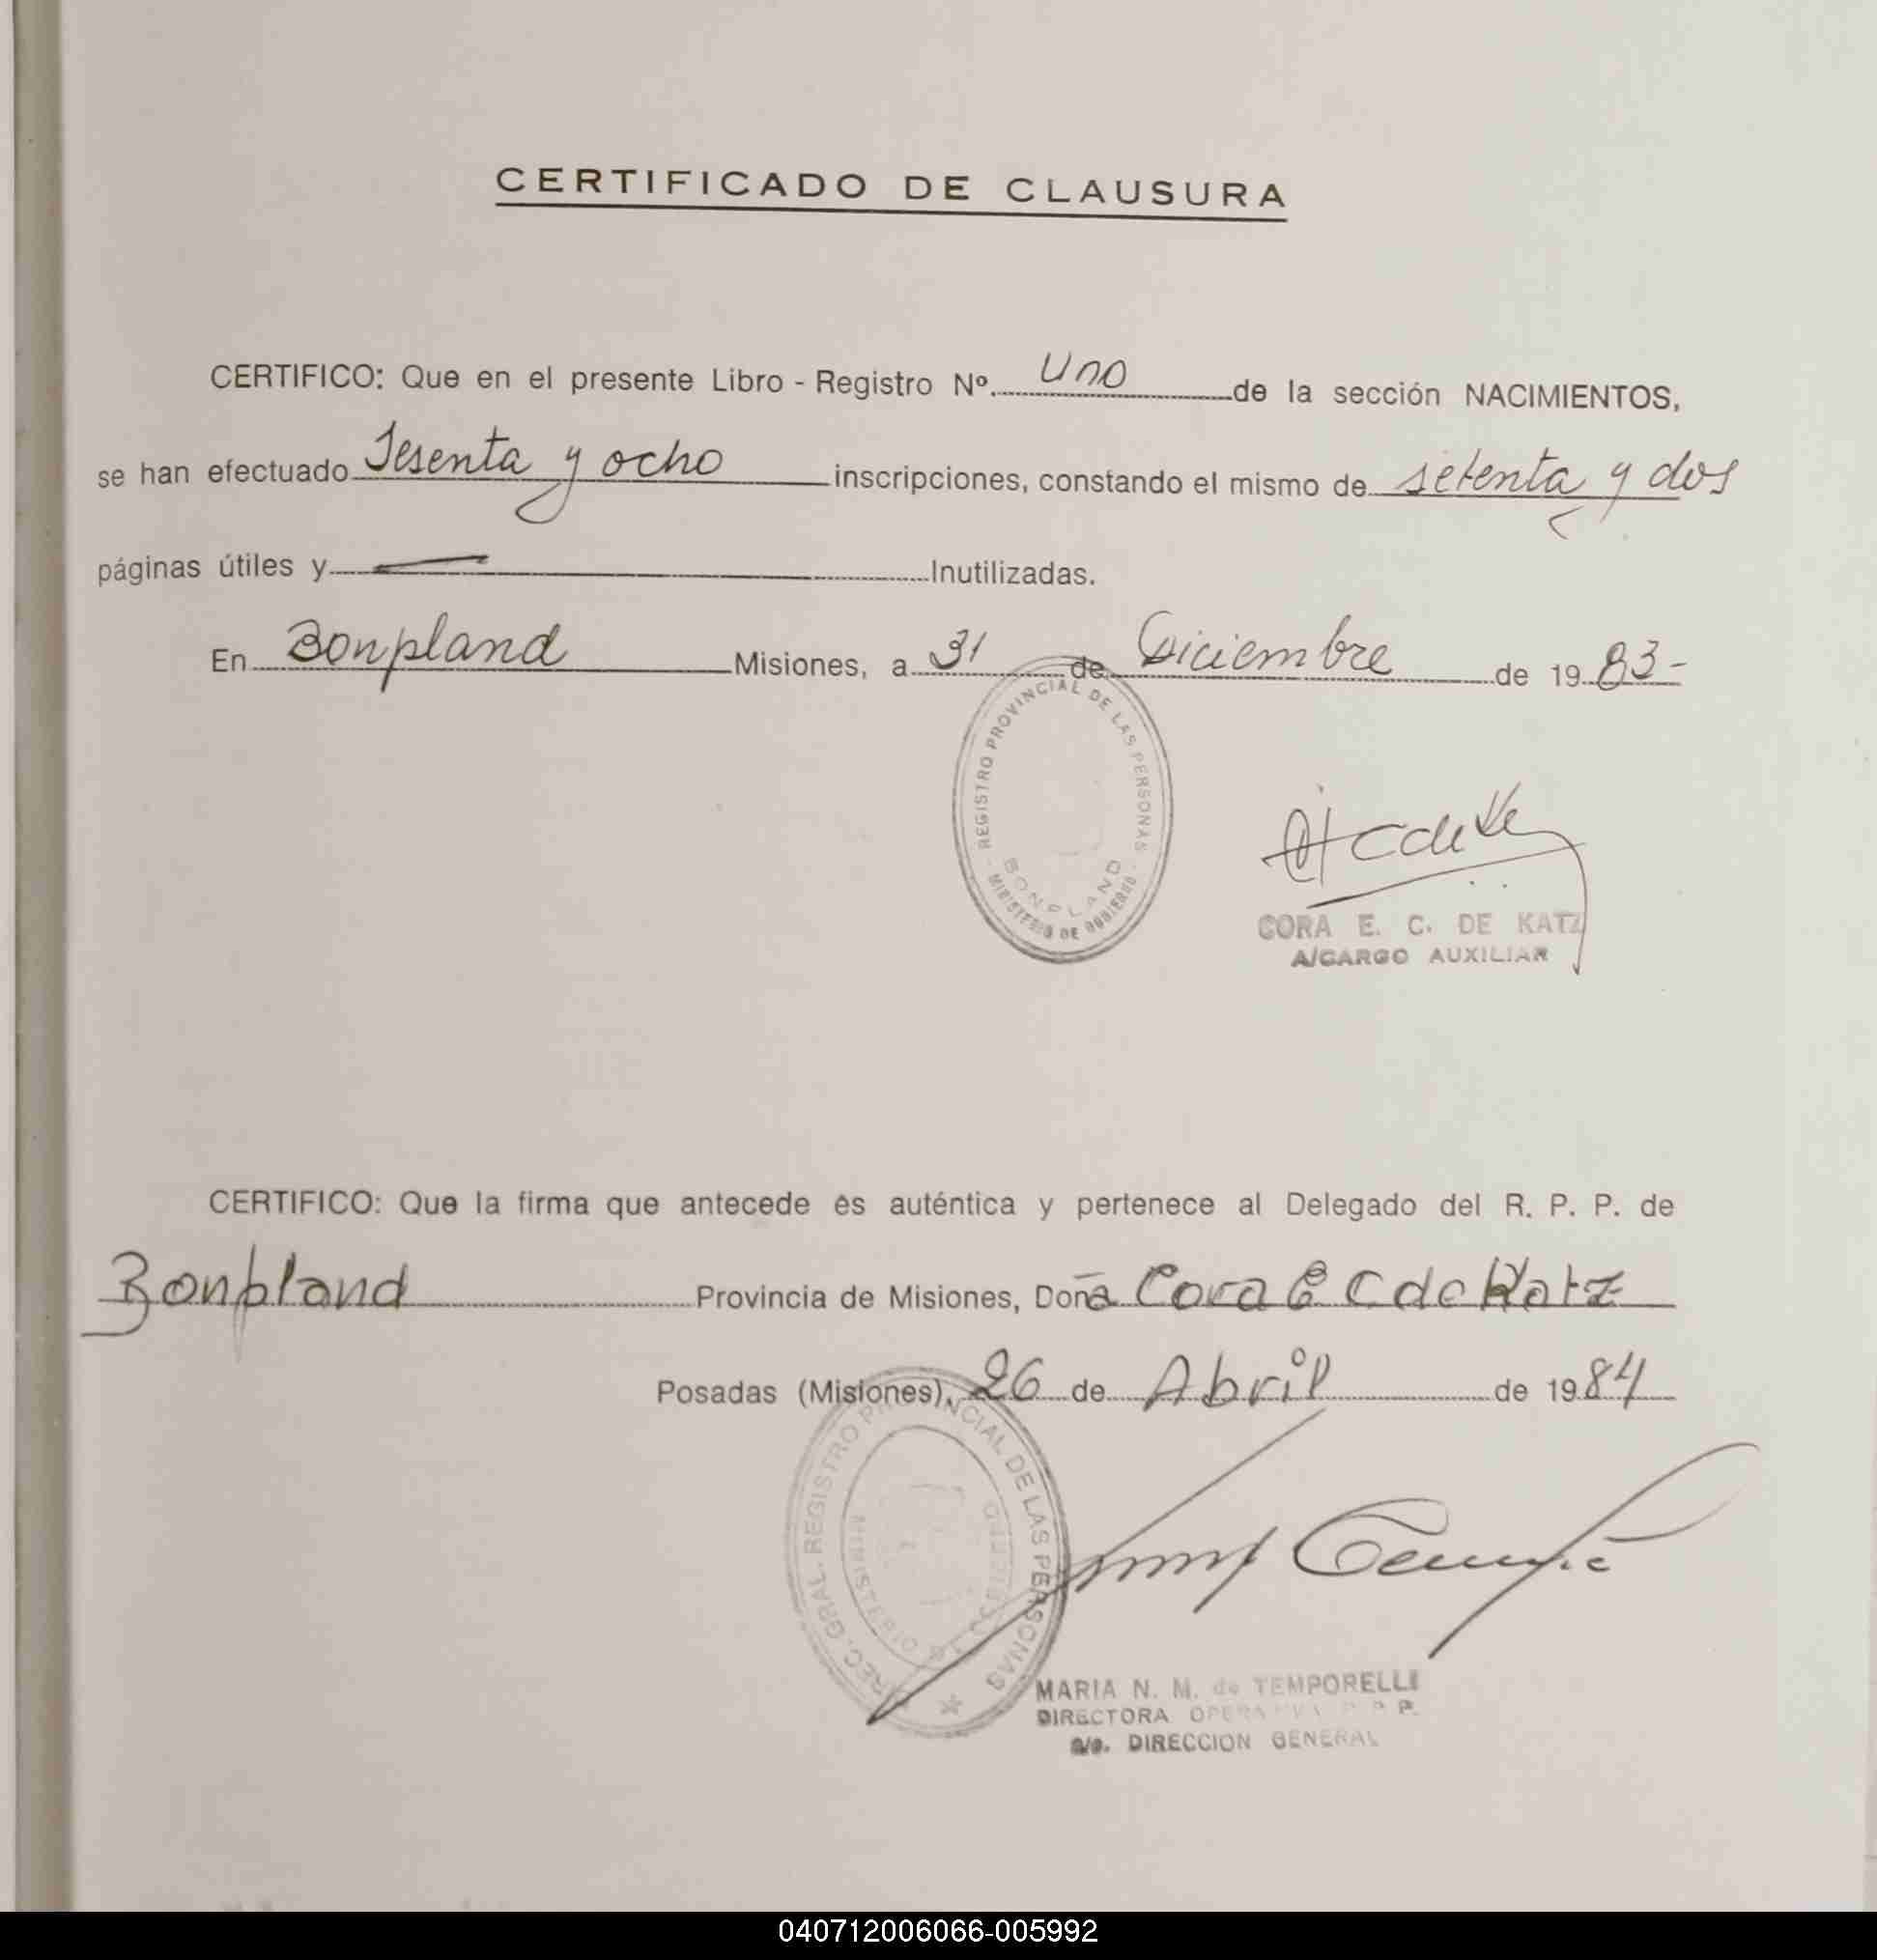 CERTIFICADO DE CLAUSURA
CERTIFICO: Que en el presente Libro - Registro Nº. Uno de la sección NACIMIENTOS,
se han efectuado Sesenta y ocho inscripciones, constando el mismo de setenta y dos
páginas útiles y — Inutilizadas.
En Bonpland Misiones, a 31 de Diciembre de 1983-
REGISTRO PROVINCIAL DE LAS PERSONAS
BONPLAND
MINISTERIO DE GOBIERNO
CORA E. C. DE KATZ
A/CARGO AUXILIAR
CERTIFICO: Que la firma que antecede es auténtica y pertenece al Delegado del R. P. P. de
Bonpland Provincia de Misiones, Doña Cora E C de Katz
Posadas (Misiones), 26 de Abril de 1984
REC. GRAL. REGISTRO PROVINCIAL DE LAS PERSONAS
MINISTERIO DE GOBIERNO
MARIA N. M. de TEMPORELLI
DIRECTORA R. P. P.
a/c. DIRECCION GENERAL
040712006066-005992